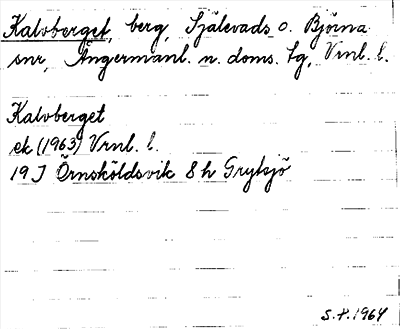 Kalvberget, berg, Själevads o. Björna
snr, Ångermanl. n. doms. tg, Vrnl. l.
Kalvberget
ek (1963) Vrnl. l.
19 J Örnsköldsvik 8 h Grytsjö
S.H. 1964